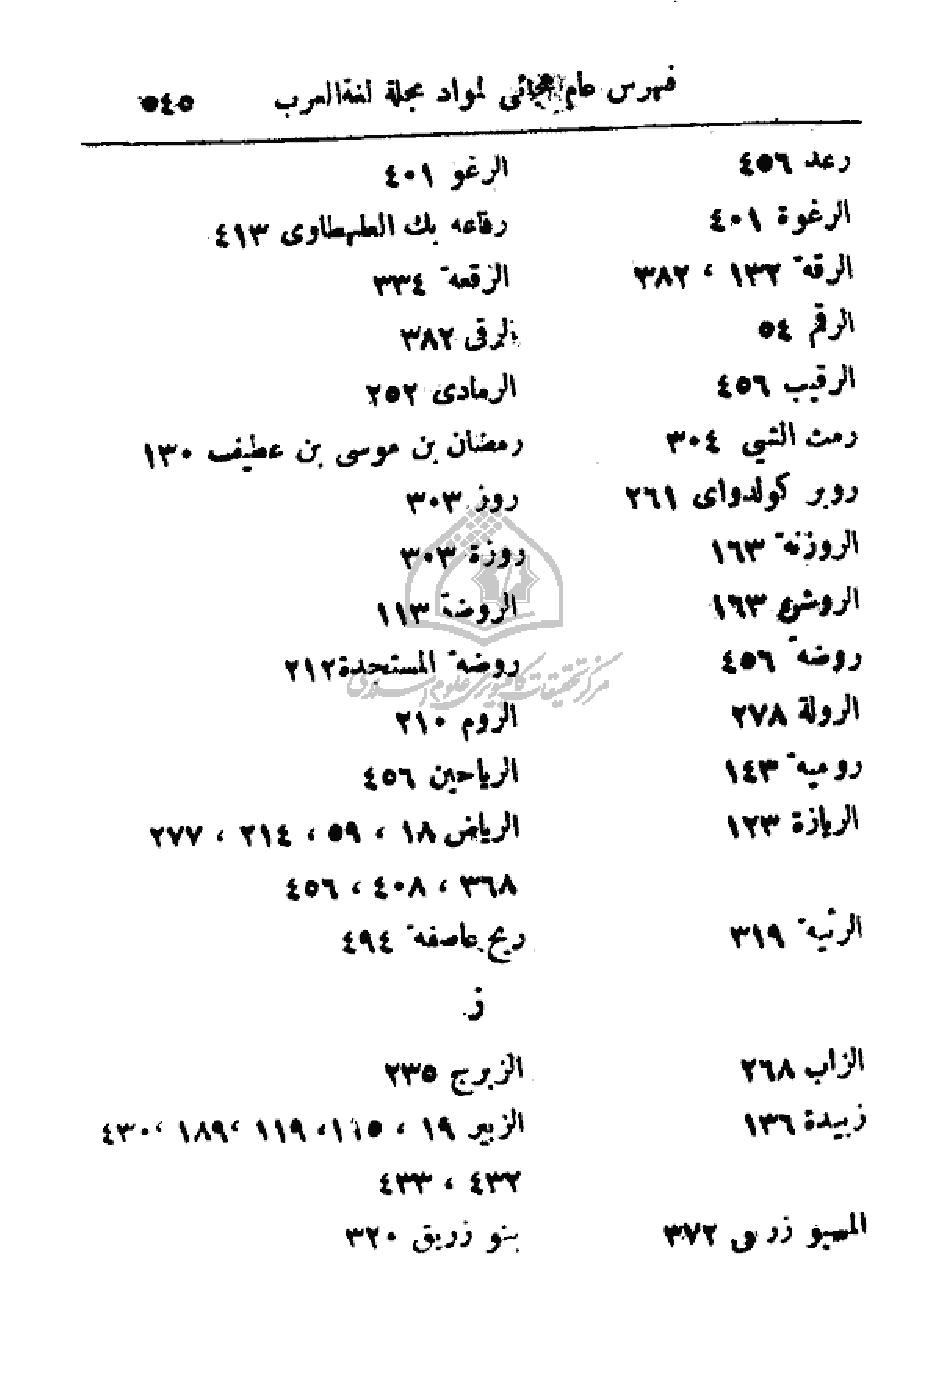 فهرس عام هجائي لمواد مجلة لغة العرب ٥٤٥
رعد ٤٥٦ الرغو ٤٠١
الرغوة ٤٠١ رفاعه بك الطهطاوى ٤١٣
الرقة ١٣٢ ، ٣٨٢ الرقعة ٣٣٤
الرقم ٥٤ الرقى ٣٨٢
الرقيب ٤٥٦ الرمادى ٢٥٢
رمث الشي ٣٠٤ رمضان بن موسى بن عطيف ١٣٠
روبر كولدواى ٢٦١ روز ٣٠٣
الروزنة ١٦٣ روزة ٣٠٣
الروشن ١٦٣ الروضة ١١٣
روضة ٤٥٦ روضة المستجدة ٢١٢
الرولة ٢٧٨ الروم ٢١٠
رومية ١٤٣ الرياحين ٤٥٦
الريازة ١٢٣ الرياض ١٨ ، ٥٩ ، ٢١٤ ، ٢٧٧
٣٦٨ ، ٤٠٨ ، ٤٥٦
الرئية ٣١٩ ريح عاصفة ٤٩٤
ز
الزاب ٢٦٨ الزبرج ٢٣٥
زبيدة ١٣٦ الزبير ١٩ ، ١١٥ ، ١١٩ ، ١٨٩ ، ٤٣٠
٤٣٢ ، ٤٣٣
المسيو زرسى ٣٧٢ بنو زريق ٣٢٠
مركز تحقيقات كامپيوترى علوم اسلامى